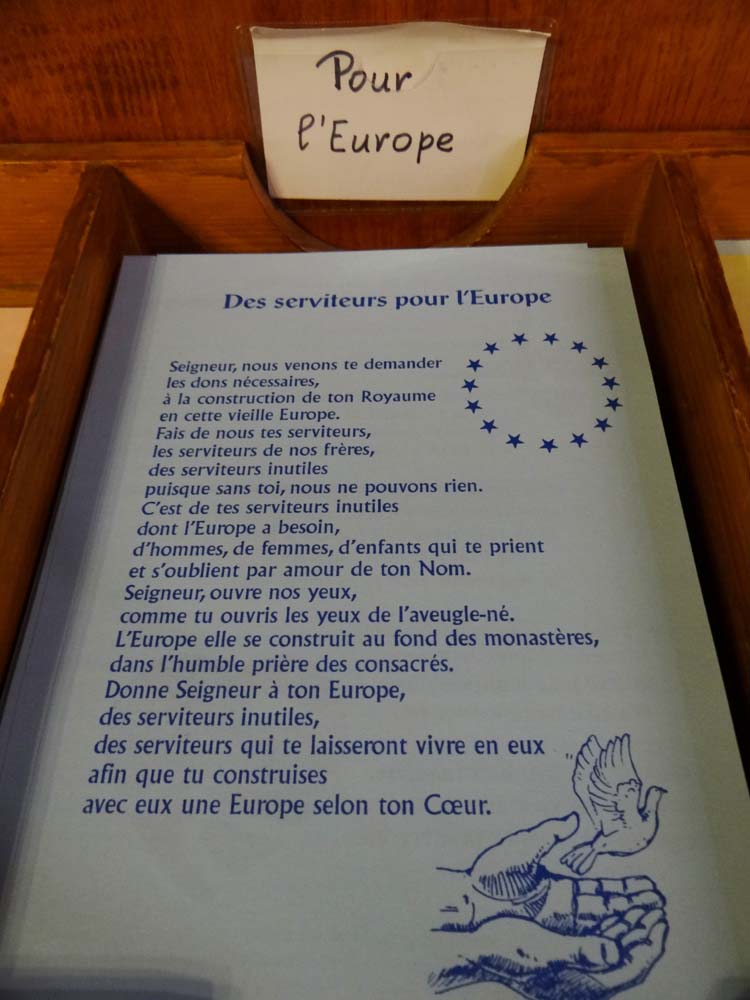 Pour
l'Europe
Des serviteurs pour l'Europe
Seigneur, nous venons te demander
les dons nécessaires,
à la construction de ton Royaume
en cette vieille Europe.
Fais de nous tes serviteurs,
les serviteurs de nos frères,
des serviteurs inutiles
puisque sans toi, nous ne pouvons rien.
C'est de tes serviteurs inutiles
dont l'Europe a besoin,
d'hommes, de femmes, d'enfants qui te prient
et s'oublient par amour de ton Nom.
Seigneur, ouvre nos yeux,
comme tu ouvris les yeux de l'aveugle-né.
L'Europe elle se construit au fond des monastères,
dans l'humble prière des consacrés.
Donne Seigneur à ton Europe,
des serviteurs inutiles,
des serviteurs qui te laisseront vivre en eux
afin que tu construises
avec eux une Europe selon ton Cœur.